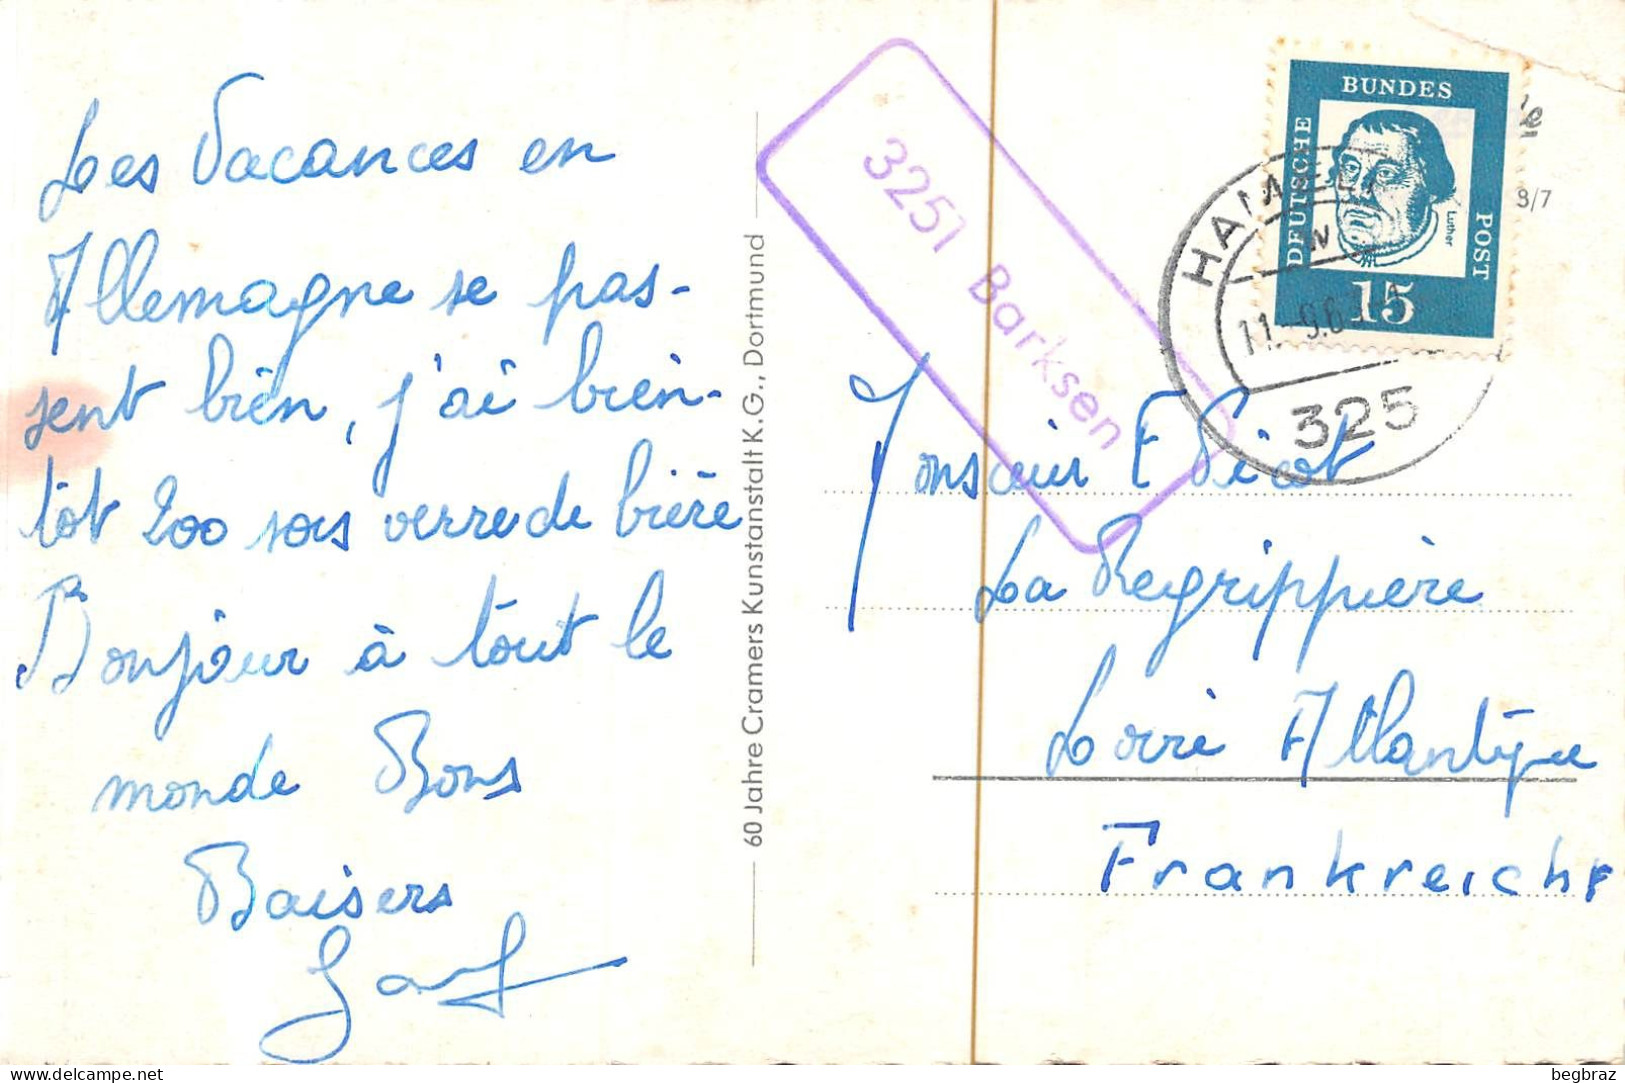 Les Vacances en
Allemagne se pas-
sent bien, j'ai bien-
tôt 200 sors verre de bière
Bonjour à tout le
monde Bons
Baisers
60 Jahre Cramers Kunstanstalt K.G., Dortmund
3251 Barksen
BUNDES
DEUTSCHE
POST
Luther
15
HAMELN
11.-9.6
325
8/7
Monsieur F Picot
La Regrippière
Loire Atlantique
Frankreich
begbraz